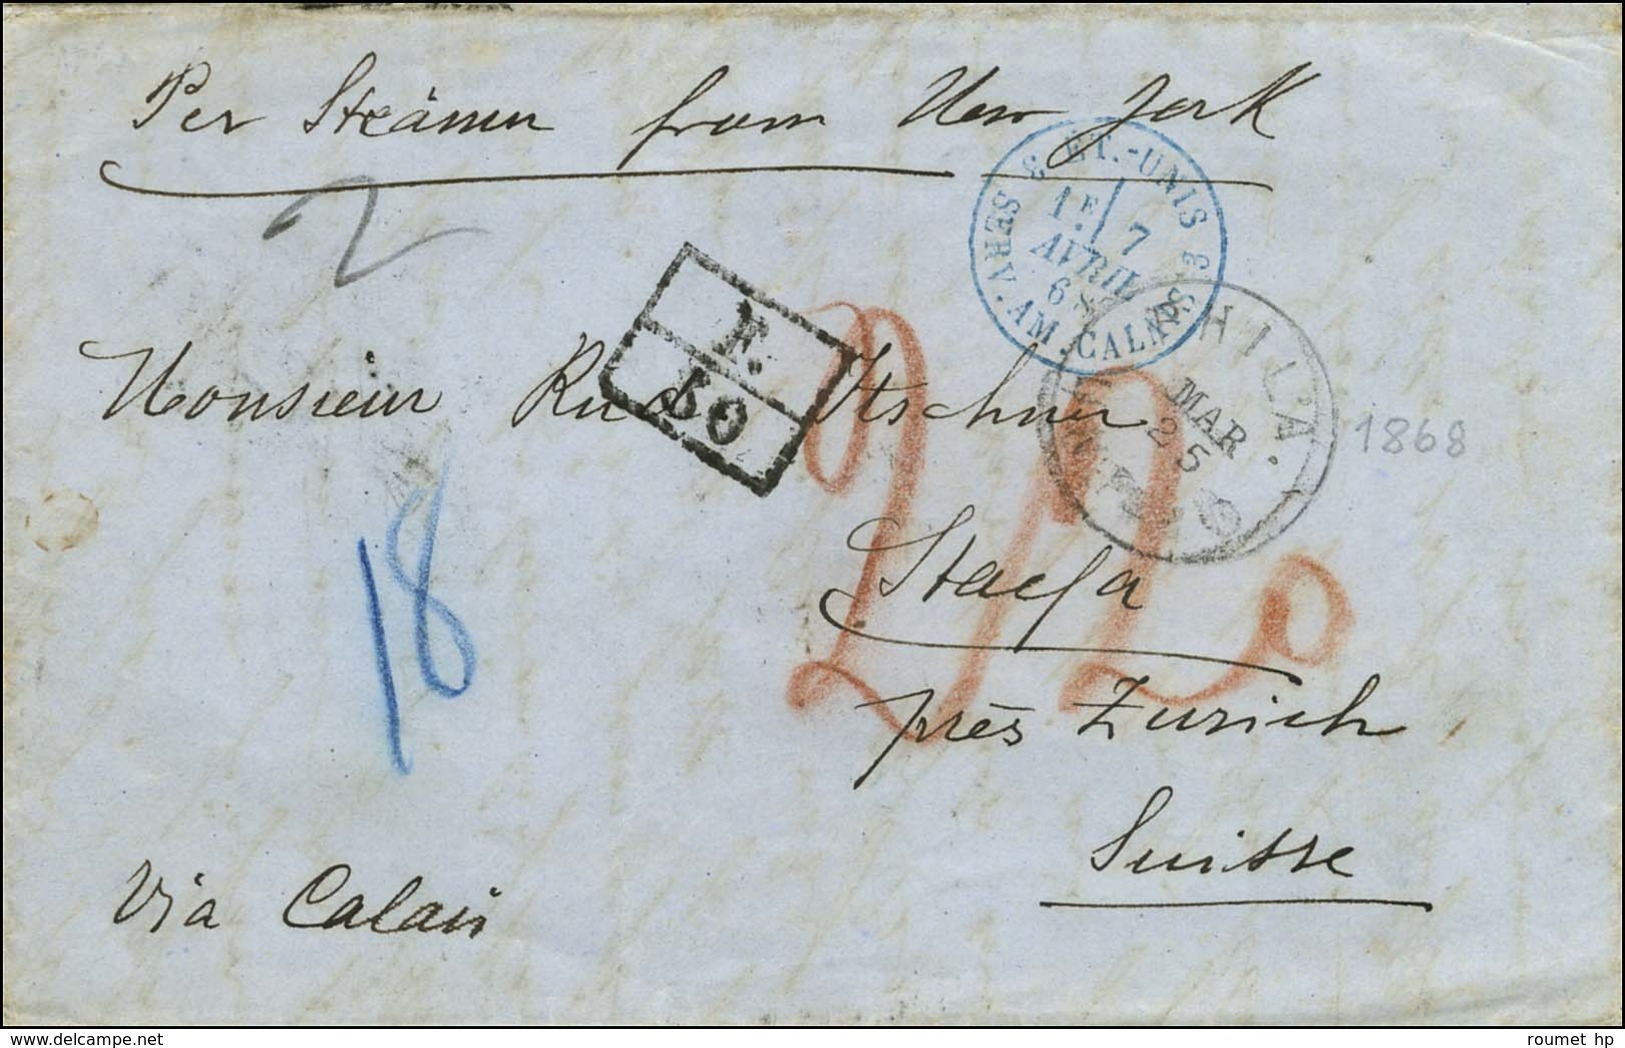 Per Steamer from New York
2
ET.-UNIS
3 SERV. AM. CALAIS 3
1E 7
AVRIL
68
F.
50
PHIL'A.
MAR
25
Monsieur Rud Itschner
1868
22
Staefa
18
près Zurich
Suisse
Via Calais
delcampe.net
roumet hp